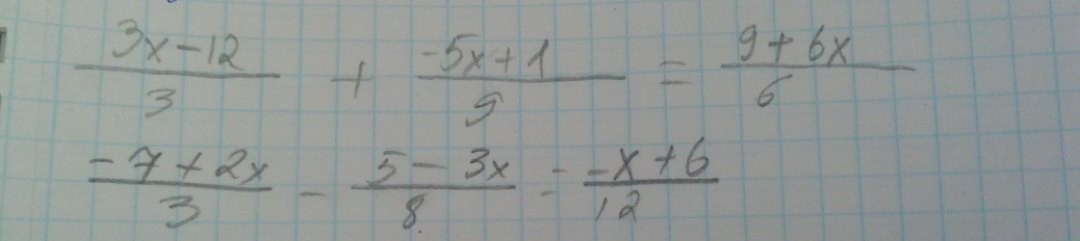 3x-12/3 + -5x+1/9 = 9+6x/6
-7+2x/3 - 5-3x/8 = -x+6/12